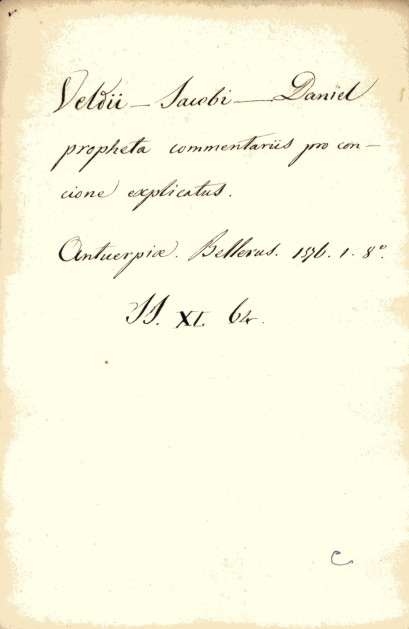 Veldii — Jacobi — Daniel
propheta commentariis pro con-
cione explicatus.
Antuerpiæ. Bellerus. 1576. 1. 8º.
SS. XI. 64.
C